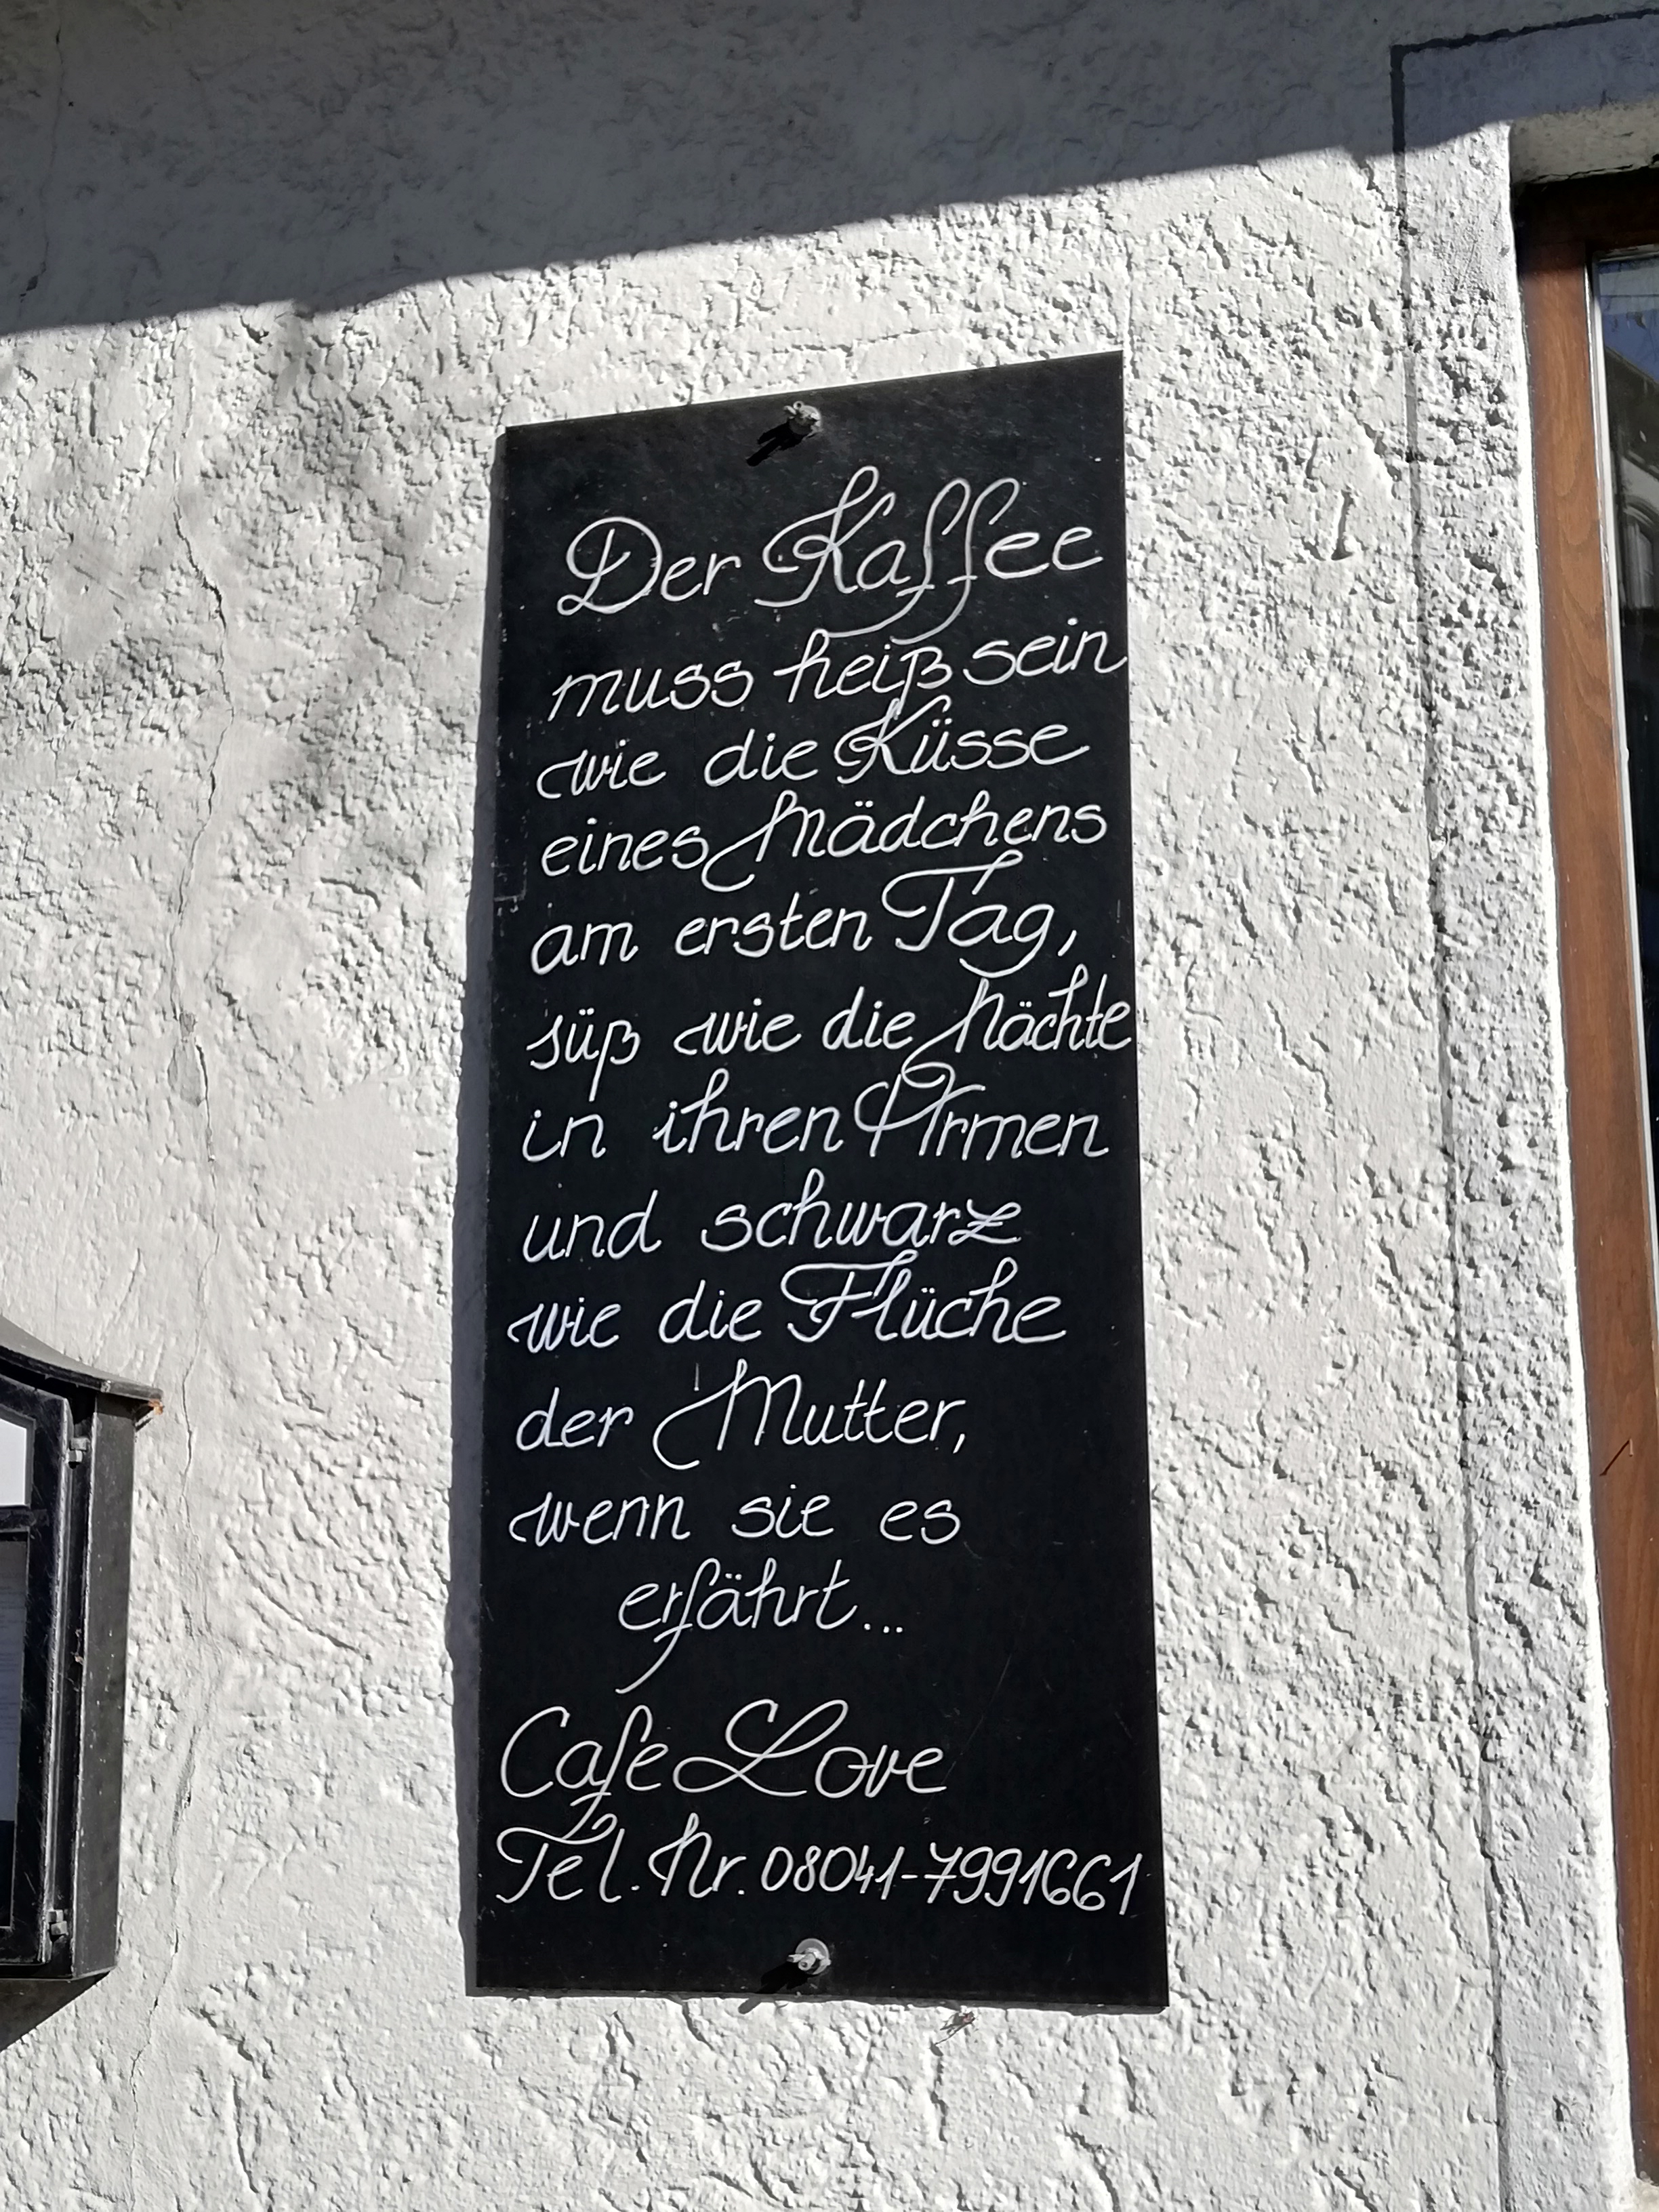 Der Kaffee
muss heiß sein
wie die Küsse
eines Mädchens
am ersten Tag,
süß wie die Nächte
in ihren Armen
und schwarz
wie die Flüche
der Mutter,
wenn sie es
erfährt...
Cafe Love
Tel. Nr. 08041-7991661